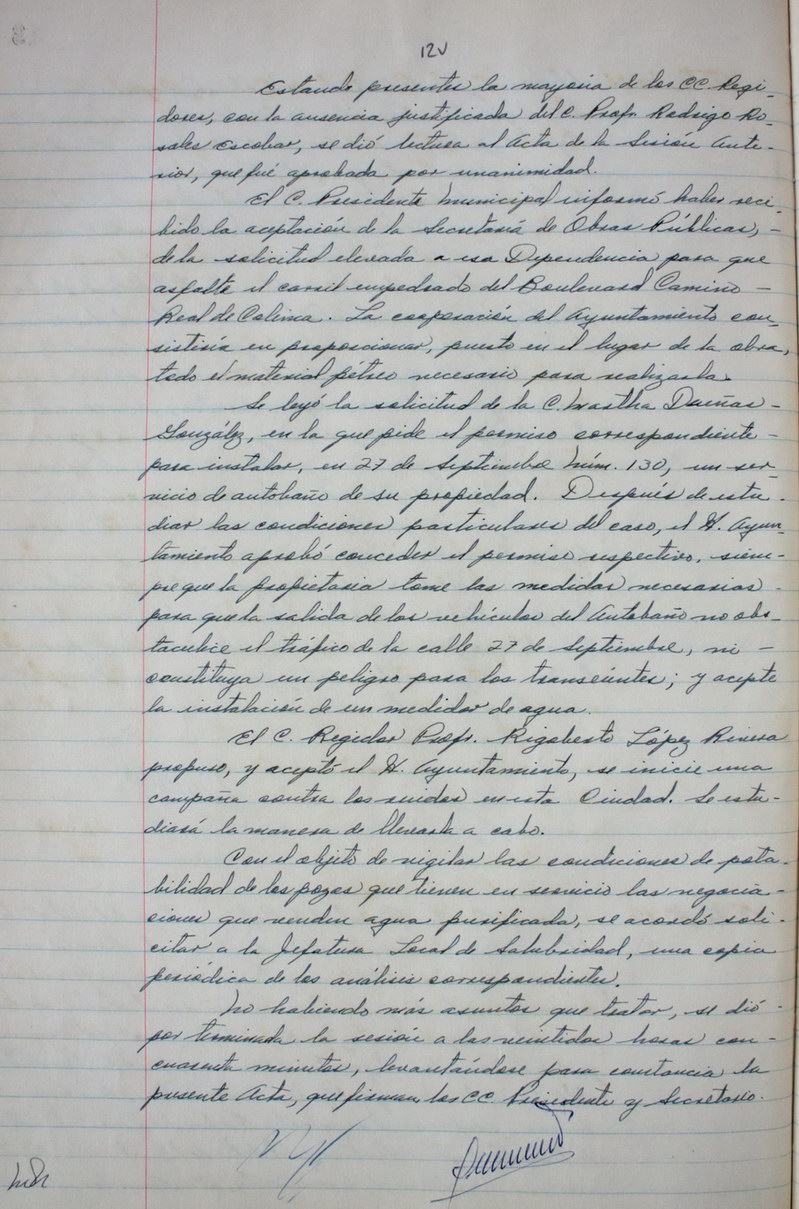 12v
Estando presentes la mayoría de los CC. Regi-
dores, con la ausencia justificada del C. Profr. Rodrigo Ro-
sales Escobar, se dió lectura al Acta de la Sesión Ante-
rior, que fué aprobada por unanimidad.
El C. Presidente Municipal informó haber reci-
bido la aceptación de la Secretaría de Obras Públicas, -
de la solicitud elevada a esa Dependencia para que
asfalte el carril empedrado del Boulevard Camino -
Real de Colima. La cooperación del Ayuntamiento con-
sistiría en proporcionar, puesto en el lugar de la obra,
todo el material pétreo necesario para realizarla.
Se leyó la solicitud de la C. Martha Dueñas -
González, en la que pide el permiso correspondiente -
para instalar, en 27 de Septiembre Núm. 130, un ser-
vicio de autobaño de su propiedad. Después de estu-
diar las condiciones particulares del caso, el H. Ayun-
tamiento aprobó conceder el permiso respectivo, siem-
pre que la propietaria tome las medidas necesarias -
para que la salida de los vehículos del Autobaño no obs-
taculice el tráfico de la calle 27 de Septiembre, ni -
constituya un peligro para los transeúntes; y acepte
la instalación de un medidor de agua.
El C. Regidor Profr. Rigoberto López Rivera
propuso, y aceptó el H. Ayuntamiento, se inicie una
campaña contra los ruidos en esta Ciudad. Se estu-
diará la manera de llevarla a cabo.
Con el objeto de vigilar las condiciones de pota-
bilidad de los pozos que tienen en servicio las negocia-
ciones que venden agua purificada, se acordó soli-
citar a la Jefatura Local de Salubridad, una copia
periódica de los análisis correspondientes.
No habiendo más asuntos que tratar, se dió -
por terminada la sesión a las veintidos horas con -
cuarenta minutos, levantándose para constancia la
presente Acta, que firman los CC. Presidente y Secretario.